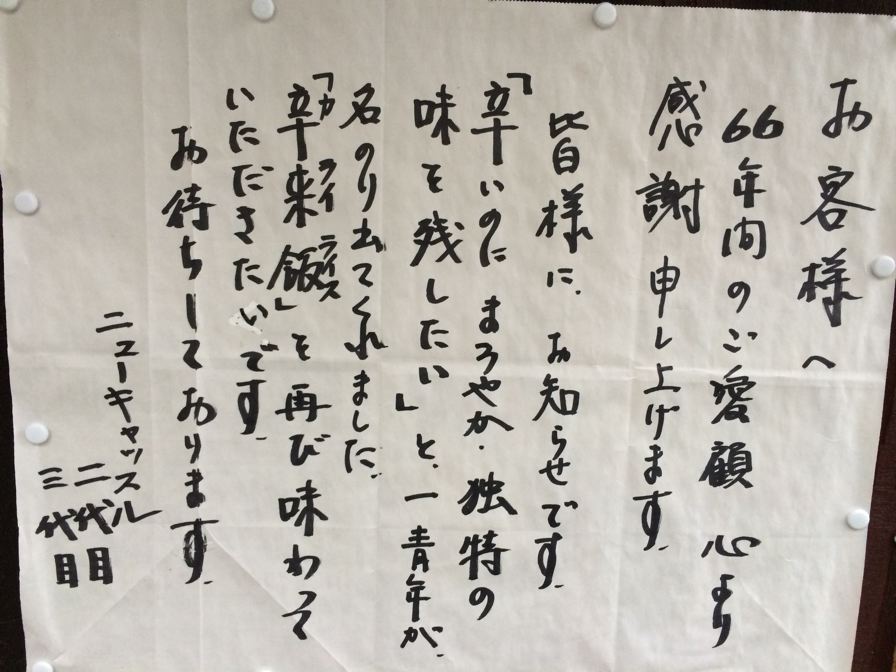 お客様へ
66年間のご愛顧 心より
感謝申し上げます。
皆様に、お知らせです。
「辛いのに まろやか・独特の
味を残したい」と、一青年が、
名のり出てくれました。
「辛来飯」を再び味わって
カライライス
いただきたいです。
お待ちしております。
ニューキャッスル
二代目
三代目